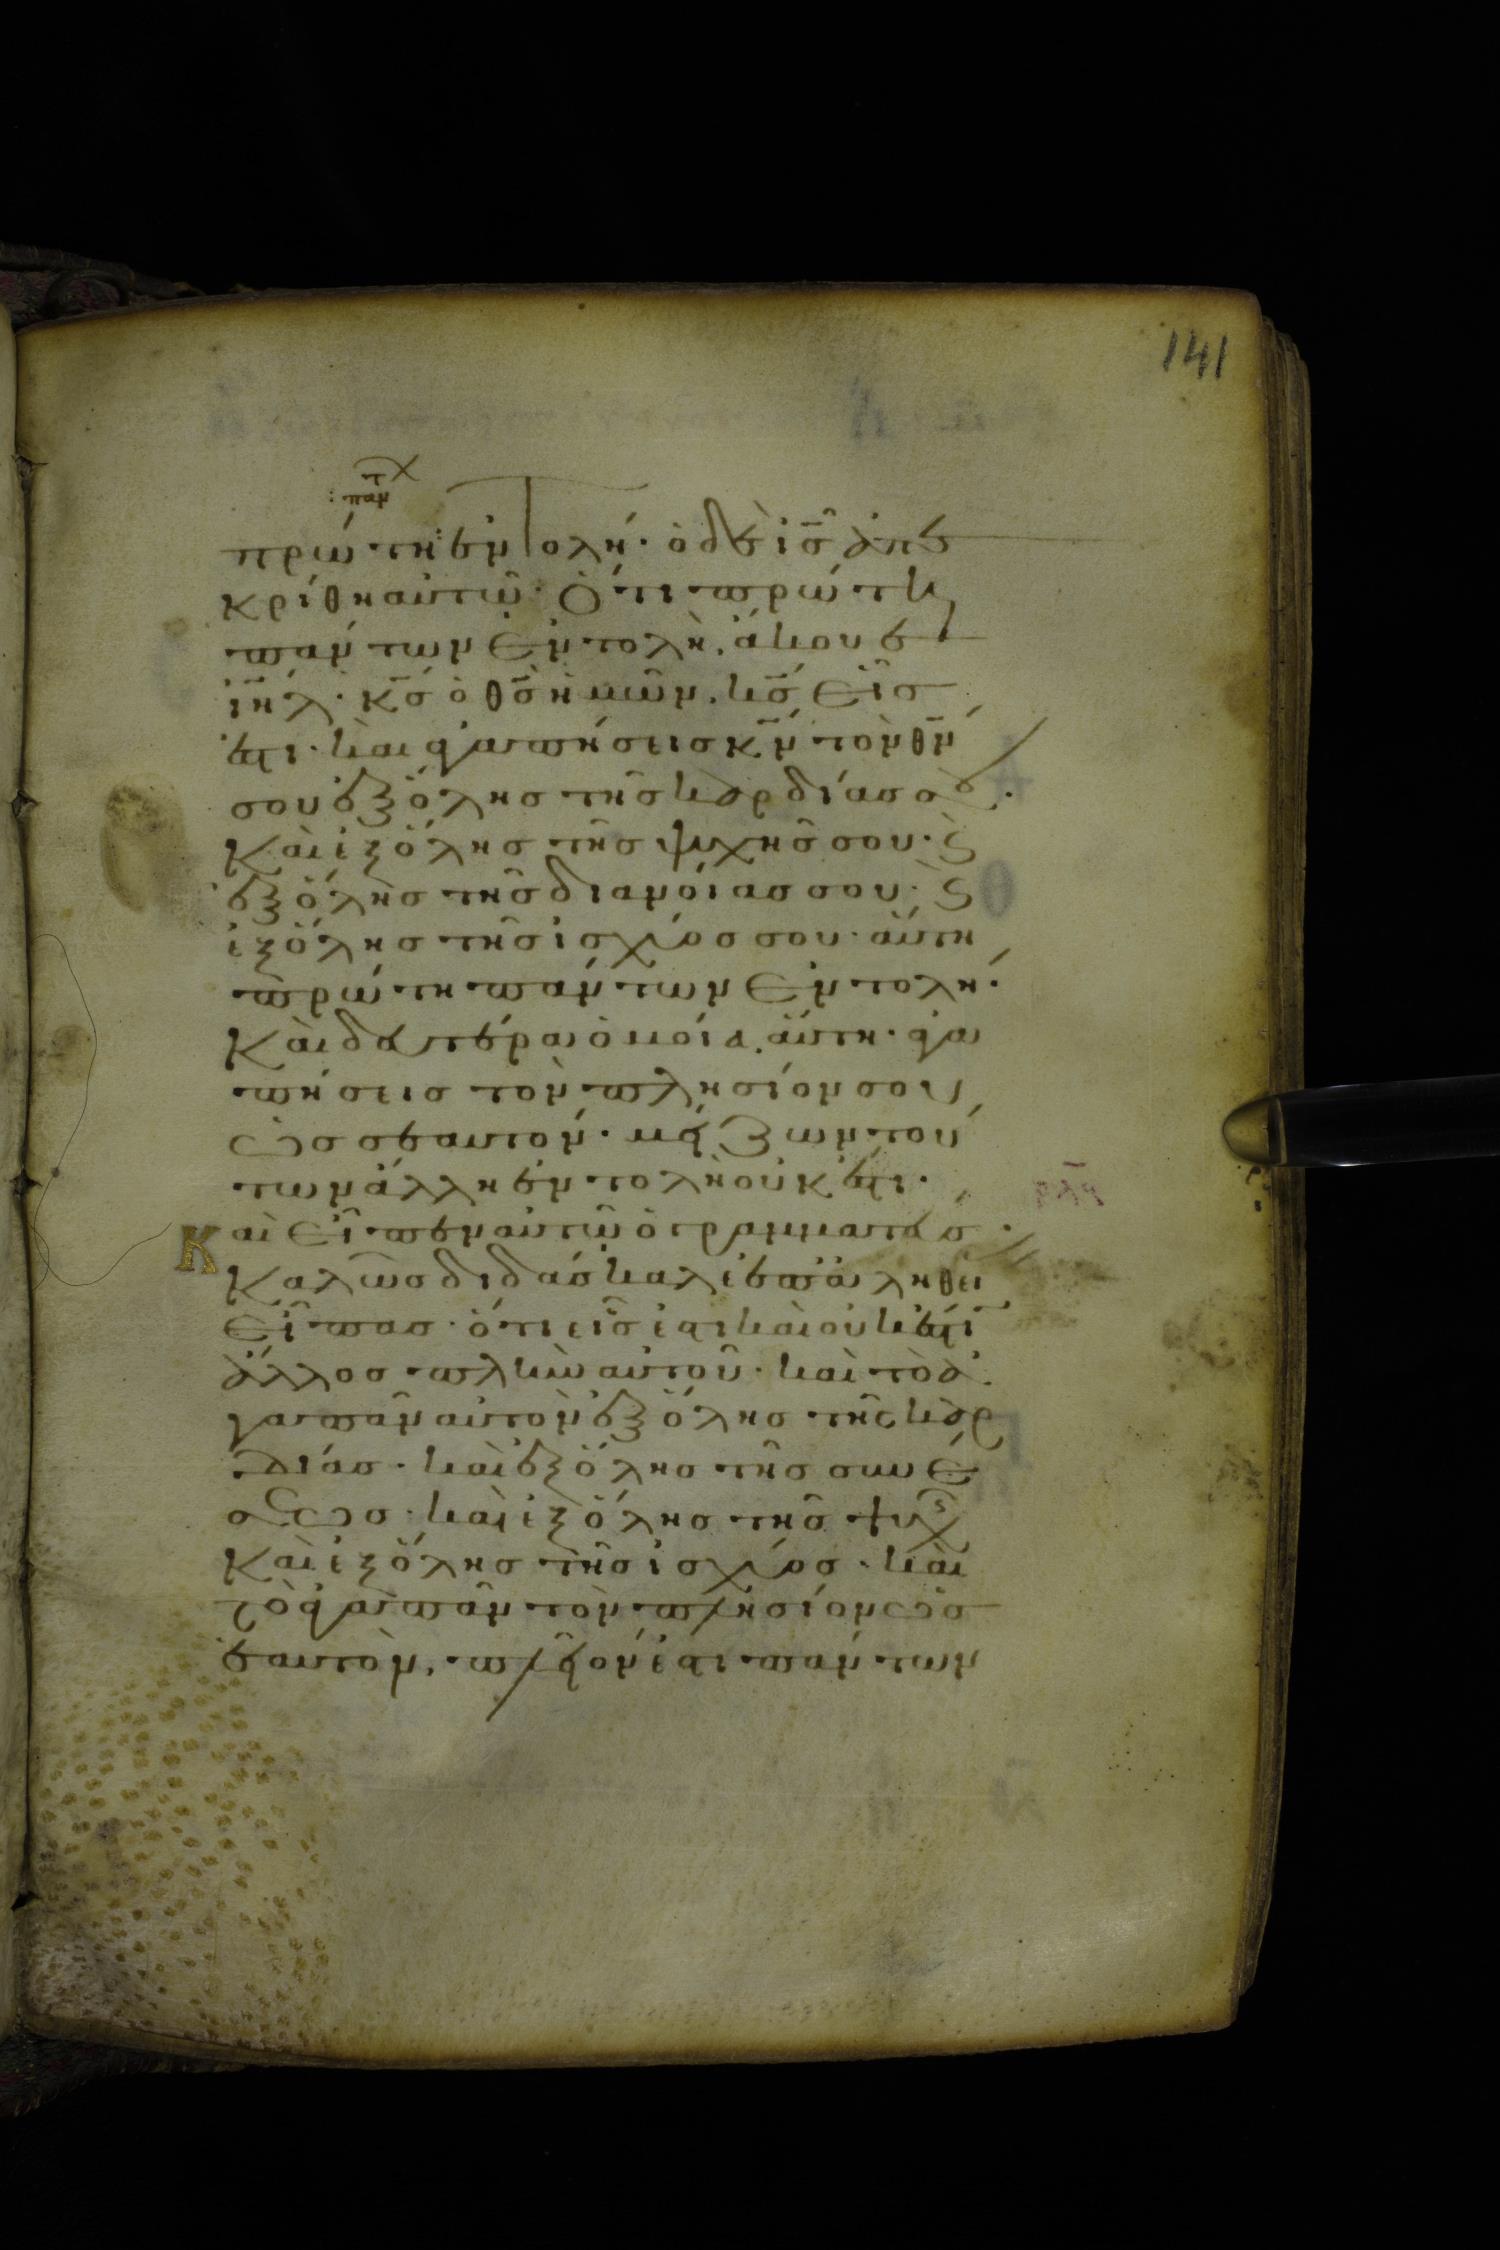 141
πρώτη ἐντολή· ὁ δὲ ις̅ ἀπε
κρίθη αὐτῶ· Ὅτι πρώτη
πάντων ἐντολὴ, ἄκουε
ιη̅λ· κς̅ ὁ θς̅ ἡμῶν, κς̅ εἷς
ἐστι· καὶ ἀγαπήσεις κν̅ τὸν θν̅
σου ἐξ ὅλης τῆς καρδίας σου·
Καὶ ἐξ ὅλης τῆς ψυχῆς σου· ϗ
ἐξ ὅλης τῆς διανοίας σου· ϗ
ἐξ ὅλης τῆς ἰσχύος σου· αὕτη
πρώτη πάντων ἐντολή·
Καὶ δευτέρα ὁμοία αὕτη· ἀγα
πήσεις τὸν πλησίον σου
ὡς σεαυτόν· μείζων τού
των ἄλλη ἐντολὴ οὐκ ἔστι·
Καὶ εἶπεν αὐτῶ ὁ γραμματεύς·
Καλῶς διδάσκαλε ἐπ' ἀληθεί
εἶπας· ὅτι εἷς ἐστι καὶ οὐκ ἔστι
ἄλλος πλὴν αὐτοῦ· καὶ τὸ ἀ
γαπᾶν αὐτὸν ἐξ ὅλης τῆς καρ
δίας· καὶ ἐξ ὅλης τῆς συνέ
σεως· καὶ ἐξ ὅλης τῆς ψυχῆς
Καὶ ἐξ ὅλης τῆς ἰσχύος· καὶ
τὸ ἀγαπᾶν τὸν πλησίον ὡς
ἑαυτὸν, πλεῖόν ἐστι πάντων